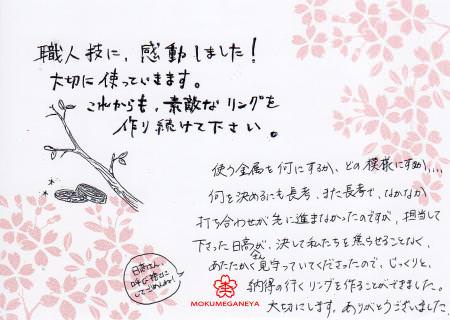 職人技に、感動しました!
大切に使っていきます。
これからも、素敵なリングを
作り続けて下さい。
使う金属を何にするか、どの模様にするか....
何を決めるにも長考、また長考で、なかなか
打ち合わせが先に進まなかったのですが、担当して
下さった日高さんが、決して私たちを焦らせることなく、
あたたかく見守っていてくださったので、じっくりと、
納得の行くリングを作ることができました。
大切にします。ありがとうございました。
日高さん、
呼び捨てに
してごめんなさい!
MOKUMEGANEYA